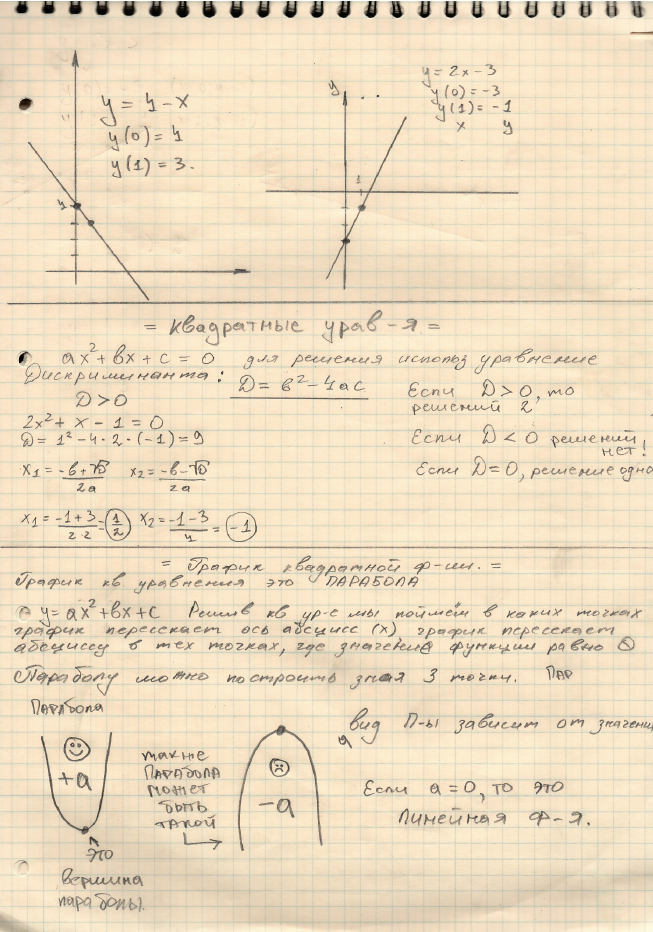 y = 4 - x
y(0) = 4
y(1) = 3.
4
y
y = 2x - 3
y(0) = -3
y(1) = -1
x y
1
= Квадратные урав-я =
ax² + bx + c = 0 для решения использ уравнение
Дискриминанта: D = b² - 4ac
D > 0
2x² + x - 1 = 0
D = 1² - 4 · 2 · (-1) = 9
x₁ = (-b + √D)/2a x₂ = (-b - √D)/2a
x₁ = (-1 + 3)/(2·2) = 1/2 x₂ = (-1 - 3)/4 = -1
Если D > 0, то
решений 2
Если D < 0 решений
нет!
Если D = 0, решение одно
= График квадратной ф-ии. =
График кв. уравнения это ПАРАБОЛА
y = ax² + bx + c Решив кв ур-е мы поймём в каких точках
график пересекает ось абсцисс (x), график пересекает
абсциссу в тех точках, где значение функции равно 0
Параболу можно построить зная 3 точки. ПАР
ПАРАБОЛА
+a
это
вершина
параболы.
также
ПАРАБОЛА
может
быть
такой
-a
вид П-ы зависит от значени
a
Если a = 0, то это
Линейная ф-я.